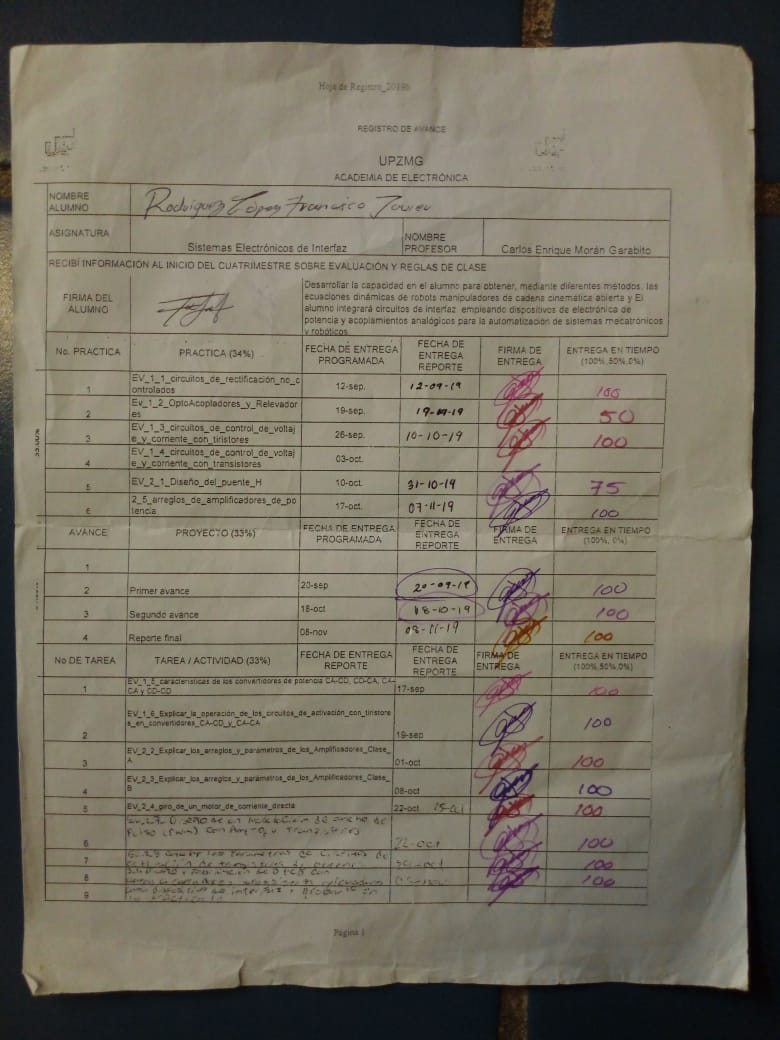 Hoja de Registro_2019b
REGISTRO DE AVANCE
UPZMG
ACADEMIA DE ELECTRÓNICA
NOMBRE ALUMNO Rodriguez López Francisco Javier
ASIGNATURA Sistemas Electrónicos de Interfaz NOMBRE PROFESOR Carlos Enrique Morán Garabito
RECIBÍ INFORMACIÓN AL INICIO DEL CUATRIMESTRE SOBRE EVALUACIÓN Y REGLAS DE CLASE
FIRMA DEL ALUMNO
Desarrollar la capacidad en el alumno para obtener, mediante diferentes métodos, las
ecuaciones dinámicas de robots manipuladores de cadena cinemática abierta y El
alumno integrará circuitos de interfaz empleando dispositivos de electrónica de
potencia y acoplamientos analógicos para la automatización de sistemas mecatrónicos
y robóticos.
No. PRACTICA PRACTICA (34%) FECHA DE ENTREGA PROGRAMADA FECHA DE ENTREGA REPORTE FIRMA DE ENTREGA ENTREGA EN TIEMPO (100%,50%,0%)
1 EV_1_1_circuitos_de_rectificación_no_controlados 12-sep. 12-09-19 100
2 Ev_1_2_OptoAcopladores_y_Relevadores 19-sep. 19-09-19 50
3 EV_1_3_circuitos_de_control_de_voltaje_y_corriente_con_tiristores 26-sep. 10-10-19 100
4 EV_1_4_circuitos_de_control_de_voltaje_y_corriente_con_transistores 03-oct.
5 EV_2_1_Diseño_del_puente_H 10-oct. 31-10-19 75
6 2_5_arreglos_de_amplificadores_de_potencia 17-oct. 07-11-19 100
AVANCE PROYECTO (33%) FECHA DE ENTREGA PROGRAMADA FECHA DE ENTREGA REPORTE FIRMA DE ENTREGA ENTREGA EN TIEMPO (100%, 0%)
1
2 Primer avance 20-sep 20-09-19 100
3 Segundo avance 18-oct 08-10-19 100
4 Reporte final 08-nov 08-11-19 100
No DE TAREA TAREA / ACTIVIDAD (33%) FECHA DE ENTREGA REPORTE FECHA DE ENTREGA REPORTE FIRMA DE ENTREGA ENTREGA EN TIEMPO (100%,50%,0%)
1 EV_1_5_características de los convertidores de potencia CA-CD, CD-CA, CA-CA y CD-CD 17-sep 100
2 EV_1_6_Explicar_la_operación_de_los_circuitos_de_activación_con_tiristores_en_convertidores_CA-CD_y_CA-CA 19-sep 100
3 EV_2_2_Explicar_los_arreglos_y_parámetros_de_los_Amplificadores_Clase_A 01-oct 100
4 EV_2_3_Explicar_los_arreglos_y_parámetros_de_los_Amplificadores_Clase_B 08-oct 100
5 EV_2_4_giro_de_un_motor_de_corriente_directa 22-oct 100
6 22-oct 100
7 100
8 100
9
Página 1